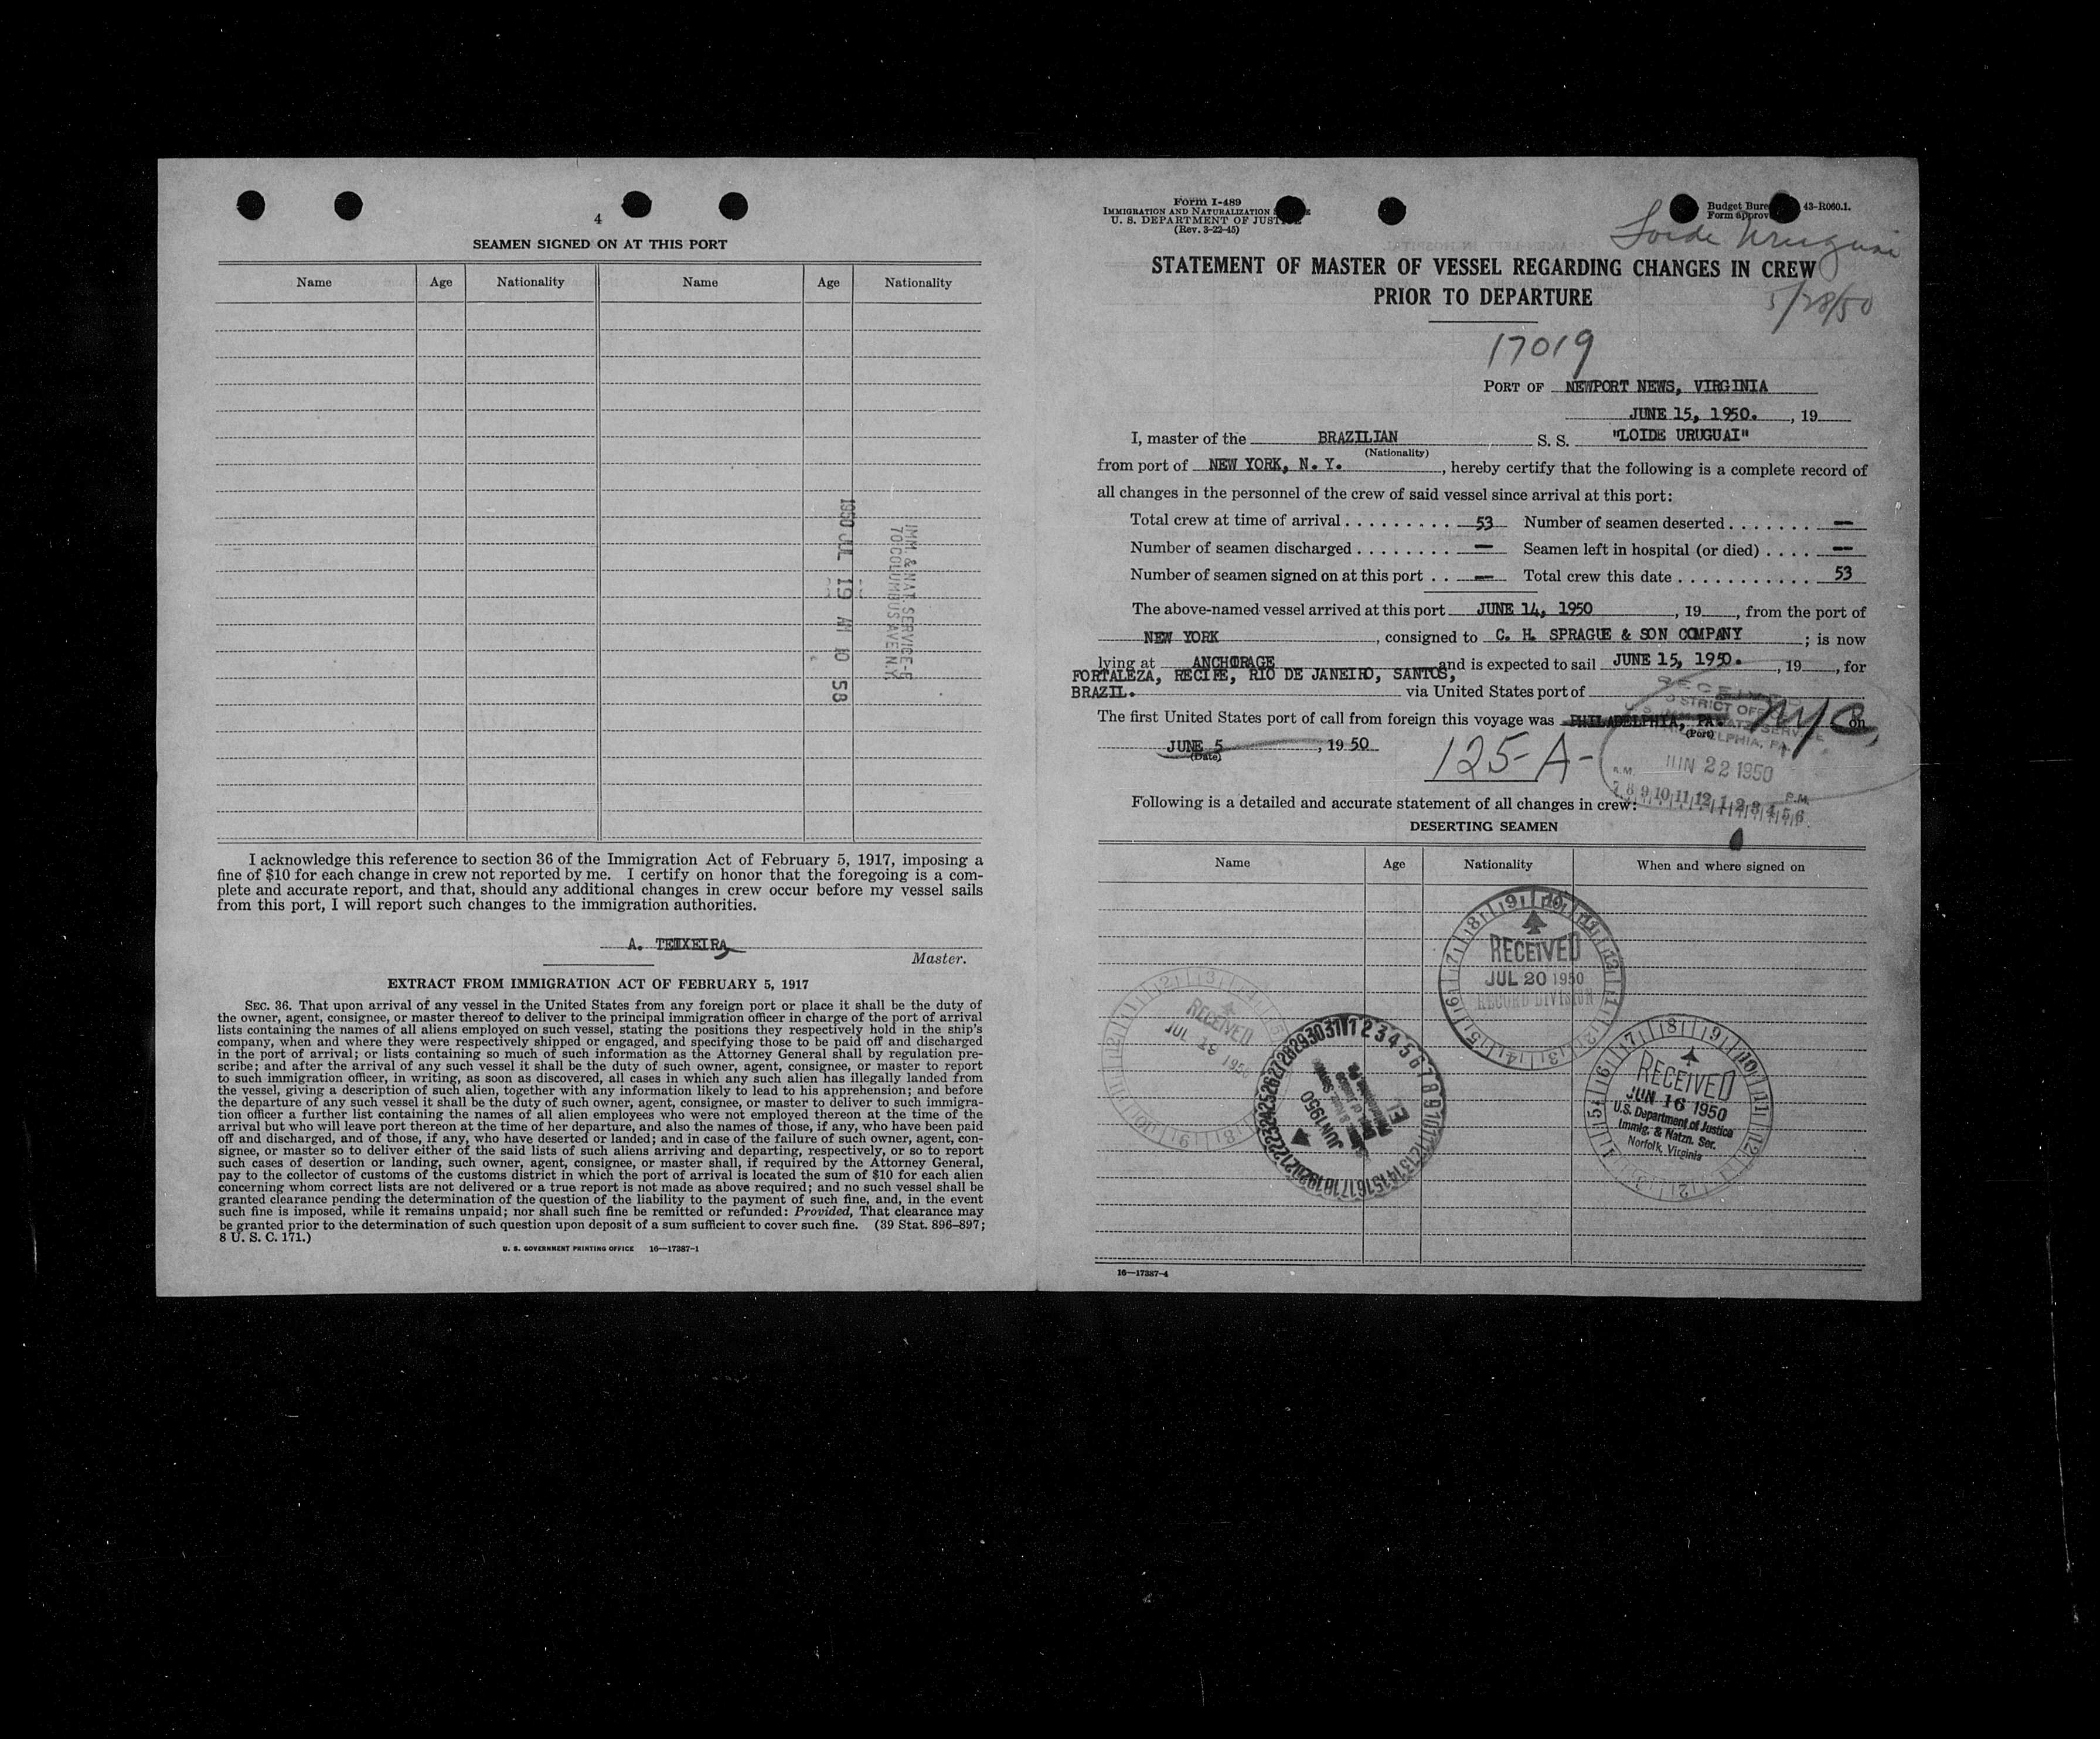 4
SEAMEN SIGNED ON AT THIS PORT
Name Age Nationality Name Age Nationality
1950 JUL 19 AM 10 58
IMM. & NAT. SERVICE-E
70 COLUMBUS AVE N.Y.
I acknowledge this reference to section 36 of the Immigration Act of February 5, 1917, imposing a
fine of $10 for each change in crew not reported by me. I certify on honor that the foregoing is a com-
plete and accurate report, and that, should any additional changes in crew occur before my vessel sails
from this port, I will report such changes to the immigration authorities.
A. TEIXEIRA
Master.
EXTRACT FROM IMMIGRATION ACT OF FEBRUARY 5, 1917
SEC. 36. That upon arrival of any vessel in the United States from any foreign port or place it shall be the duty of
the owner, agent, consignee, or master thereof to deliver to the principal immigration officer in charge of the port of arrival
lists containing the names of all aliens employed on such vessel, stating the positions they respectively hold in the ship's
company, when and where they were respectively shipped or engaged, and specifying those to be paid off and discharged
in the port of arrival; or lists containing so much of such information as the Attorney General shall by regulation pre-
scribe; and after the arrival of any such vessel it shall be the duty of such owner, agent, consignee, or master to report
to such immigration officer, in writing, as soon as discovered, all cases in which any such alien has illegally landed from
the vessel, giving a description of such alien, together with any information likely to lead to his apprehension; and before
the departure of any such vessel it shall be the duty of such owner, agent, consignee, or master to deliver to such immigra-
tion officer a further list containing the names of all alien employees who were not employed thereon at the time of the
arrival but who will leave port thereon at the time of her departure, and also the names of those, if any, who have been paid
off and discharged, and of those, if any, who have deserted or landed; and in case of the failure of such owner, agent, con-
signee, or master so to deliver either of the said lists of such aliens arriving and departing, respectively, or so to report
such cases of desertion or landing, such owner, agent, consignee, or master shall, if required by the Attorney General,
pay to the collector of customs of the customs district in which the port of arrival is located the sum of $10 for each alien
concerning whom correct lists are not delivered or a true report is not made as above required; and no such vessel shall be
granted clearance pending the determination of the question of the liability to the payment of such fine, and, in the event
such fine is imposed, while it remains unpaid; nor shall such fine be remitted or refunded: Provided, That clearance may
be granted prior to the determination of such question upon deposit of a sum sufficient to cover such fine. (39 Stat. 896–897;
8 U. S. C. 171.)
U. S. GOVERNMENT PRINTING OFFICE 16—17387-1
Form I-489
IMMIGRATION AND NATURALIZATION
U. S. DEPARTMENT OF JUSTICE
(Rev. 3-22-45)
Budget Bure 43-R060.1.
Form approv
Loide Uruguai
5/28/50
STATEMENT OF MASTER OF VESSEL REGARDING CHANGES IN CREW
PRIOR TO DEPARTURE
17019
PORT OF NEWPORT NEWS, VIRGINIA
JUNE 15, 1950. , 19
I, master of the BRAZILIAN S. S. "LOIDE URUGUAI"
(Nationality)
from port of NEW YORK, N. Y. , hereby certify that the following is a complete record of
all changes in the personnel of the crew of said vessel since arrival at this port:
Total crew at time of arrival . . . . . . . . . 53 Number of seamen deserted . . . . . . . —
Number of seamen discharged . . . . . . . . — Seamen left in hospital (or died) . . . . —
Number of seamen signed on at this port . . — Total crew this date . . . . . . . . . . . 53
The above-named vessel arrived at this port JUNE 14, 1950 , 19 , from the port of
NEW YORK , consigned to C. H. SPRAGUE & SON COMPANY ; is now
lying at ANCHORAGE and is expected to sail JUNE 15, 1950. , 19 , for
FORTALEZA, RECIFE, RIO DE JANEIRO, SANTOS,
BRAZIL. via United States port of
The first United States port of call from foreign this voyage was PHILADELPHIA, PA. NYC, on
(Port)
JUNE 5 , 19 50
(Date)
125-A-
JUN 22 1950
A.M. P.M.
7 8 9 10 11 12 1 2 3 4 5 6
Following is a detailed and accurate statement of all changes in crew:
DESERTING SEAMEN
Name Age Nationality When and where signed on
RECEIVED
JUL 20 1950
RECORD DIVISION
RECEIVED
JUL 19 1950
JUN 1950
RECEIVED
JUN 16 1950
U.S. Department of Justice
Immig. & Natzn. Ser.
Norfolk, Virginia
16—17387-4